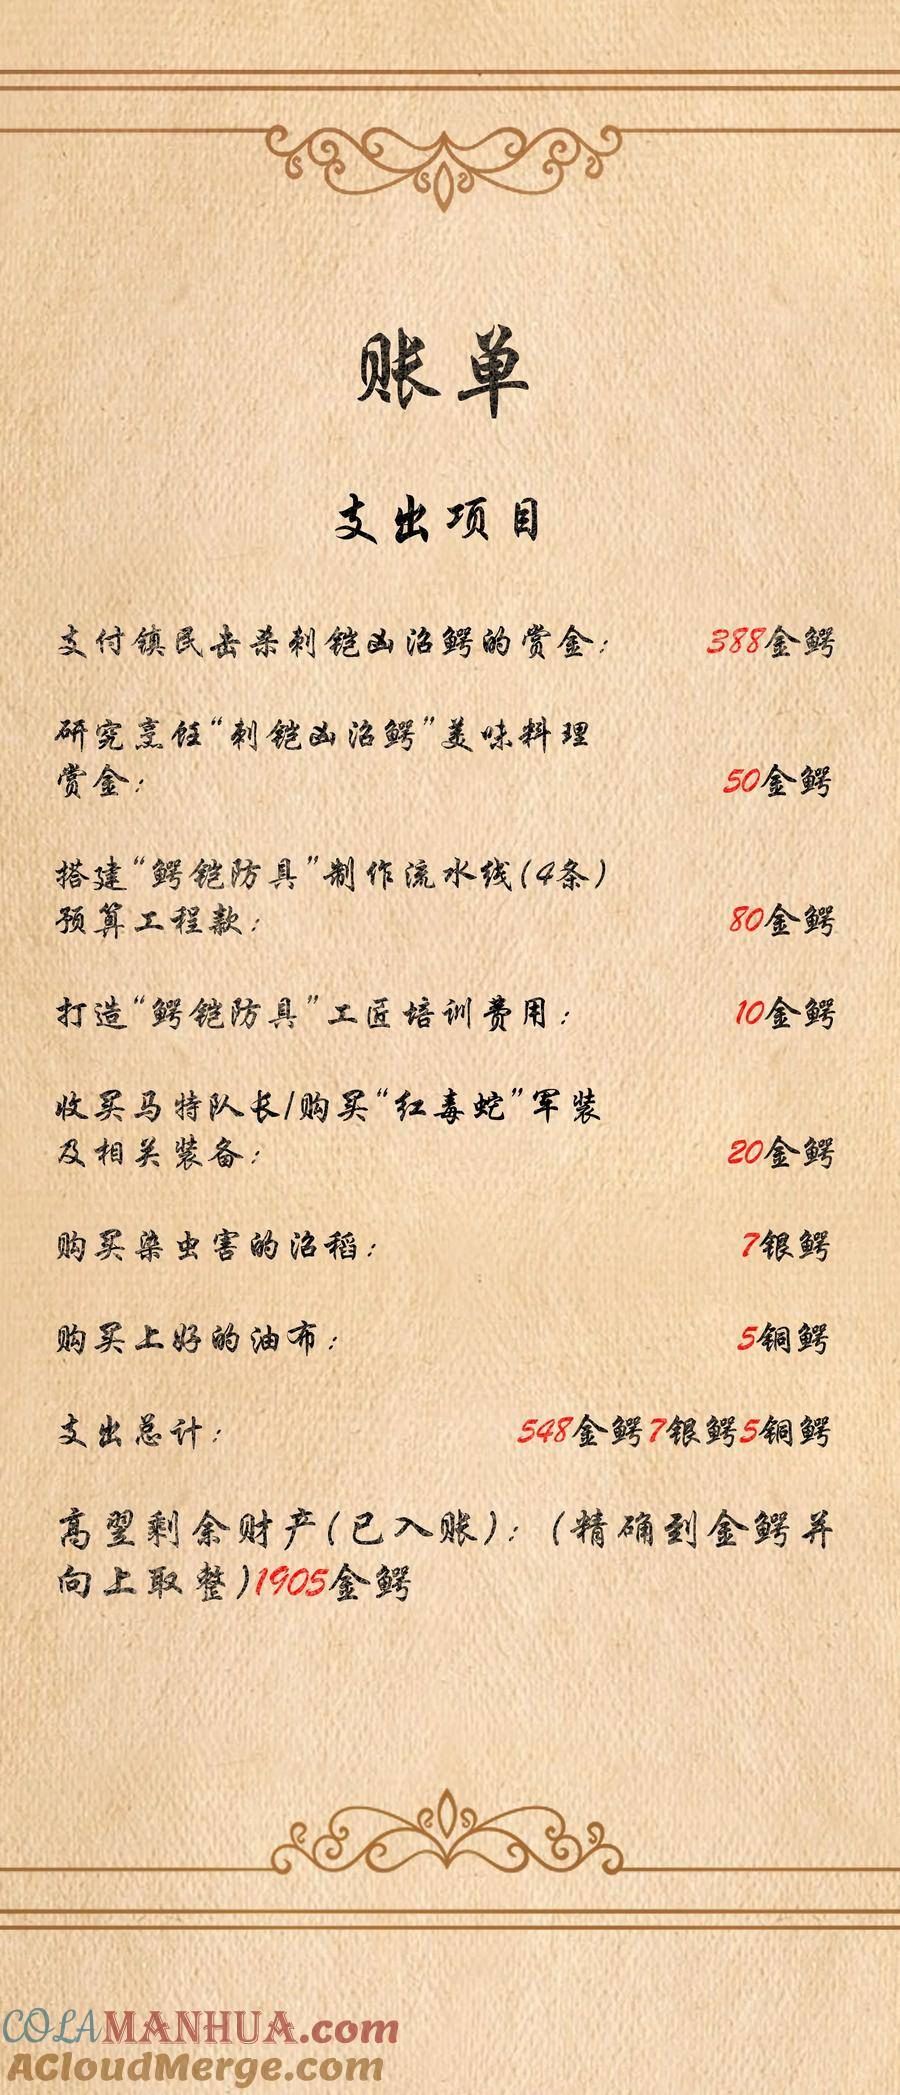 账单
支出项目
支付镇民击杀刺铠凶沼鳄的赏金： 388金鳄
研究烹饪“刺铠凶沼鳄”美味料理
赏金： 50金鳄
搭建“鳄铠防具”制作流水线(4条)
预算工程款： 80金鳄
打造“鳄铠防具”工匠培训费用： 10金鳄
收买马特队长/购买“红毒蛇”军装
及相关装备： 20金鳄
购买染虫害的沼稻： 7银鳄
购买上好的油布： 5铜鳄
支出总计： 548金鳄7银鳄5铜鳄
高翌剩余财产(已入账)：(精确到金鳄并
向上取整)1905金鳄
COLAMANHUA.com
ACloudMerge.com